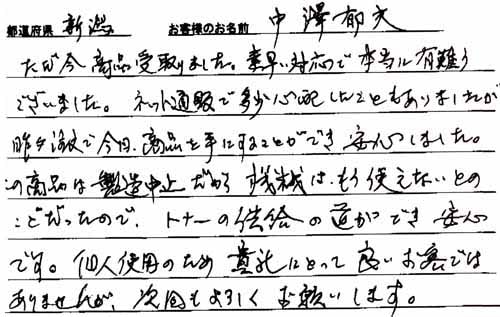 都道府県 新潟 お客様のお名前 中澤郁夫
ただ今商品受取りました。素早い対応で本当に有難う
ございました。ネット通販で多少心配したこともありましたが
昨夕注文で今日、商品を手にすることができ安心しました。
この商品は製造中止だから機械は、もう使えないとの
ことだったので、トナーの供給の道ができ安心
です。個人使用のため貴社にとって良いお客では
ありませんが、次回もよろしくお願いします。